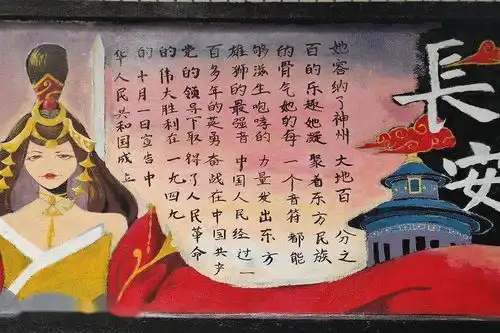 長安
她容纳了神州大地百分之
百的乐趣她凝聚着东方民族
的骨气她的每一个音符都能
够滋生咆哮的力量发出东方
雄狮的最强音中国人民经过一
百多年的英勇奋战在中国共产
党的领导下取得了人民革命
的伟大胜利在一九四九
的十月一日宣告中
华人民共和国成立